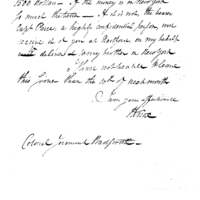 1500 dollars. If the money is in New York
so much the better. If it is not, the bearer
Capt. Pierce, a highly confidential person can
receive it of you at Hartford on my behalf
deliver it to my brother in New York
I shall not be able to leave
this sooner than the 1st of next month
I am your affectionate
Colonel Jeremiah Wadsworth